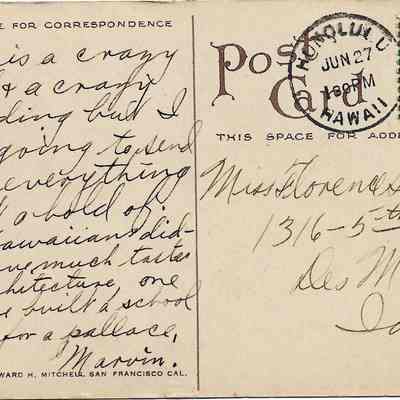 E FOR CORRESPONDENCE
is a crazy
& a crazy
ding but I
going to send
everything
a hold of.
Hawaiians did-
ve much taste
chitecture, one
e built a school
for a pallace,
Marvin.
WARD H. MITCHELL, SAN FRANCISCO CAL.
Post
Card
HONOLULU
JUN 27
PM
HAWAII
THIS SPACE FOR ADD
Miss Florence
1316-5th
Des M